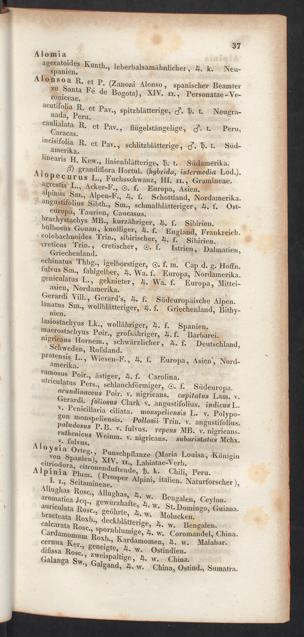 37
Alomia
ageratoides Kunth., leberbalsamähnlicher, ♃. k. Neu-
spanien.
Alonsoa R. et P. (Zanozi Alonso, spanischer Beamter
zu Santa Fé de Bogota), XIV. II., Personatae-Ve-
roniceae.
acutifolia R. et Pav., spitzblätterige, ♂. ♄. t. Neugra-
nada, Peru.
caulialata R. et Pav., flügelstängelige, ♂. t. Peru,
Caracas.
incisifolia R. et Pav., schlitzblätterige, ♂. ♄. t. Süd-
amerika.
linearis H. Kew., linienblätterige, ♄. t. Südamerika.
β) grandiflora Hortul. (hybrida, intermedia Lod.).
Alopecurus L., Fuchsschwanz, III. II., Gramineae.
agrestis L., Acker-F., ⊙. f. Europa, Asien.
alpinus Sm., Alpen-F., ♃. f. Schottland, Nordamerika.
angustifolius Sibth., Sm., schmalblätteriger, ♃. f. Ost-
europa, Taurien, Caucasus.
brachystachys MB., kurzähriger, ♃. f. Sibirien.
bulbosus Gouan., knolliger, ♃. f. England, Frankreich.
colobachnoides Trin., sibirischer, ♃. f. Sibirien.
creticus Trin., cretischer, ⊙. f. Istrien, Dalmatien,
Griechenland.
echinatus Thbg., igelborstiger, ⊙. f. m. Cap d. g. Hoffn.
fulvus Sm., fahlgelber, ♃. Wa. f. Europa, Nordamerika.
geniculatus L., geknieter, ♃. Wa. f. Europa, Mittel-
asien, Nordamerika.
Gerardi Vill., Gerard's, ♃. f. Südeuropäische Alpen.
lanatus Sm., wollblätteriger, ♃. f. Griechenland, Bithy-
nien.
lasiostachyus Lk., wollähriger, ♃. f. Spanien.
macrostachyus Poir., großähriger, ♃. f. Barbarei.
nigricans Hornem., schwärzlicher, ♃. f. Deutschland,
Schweden, Rußland.
pratensis L., Wiesen-F., ♃. f. Europa, Asien, Nord-
amerika.
ramosus Poir., ästiger, ♃. f. Carolina.
utriculatus Pers., schlauchförmiger, ⊙. f. Südeuropa.
arundinaceus Poir. v. nigricans. capitatus Lam. v.
Gerardi. foliosus Clark v. angustifolius. indicus L.
v. Penicillaria ciliata. monspeliensis L. v. Polypo-
gon monspeliensis. Pallasii Trin. v. angustifolius.
paludosus P.B. v. fulvus. repens MB. v. nigricans.
ruthenicus Weinm. v. nigricans. subaristatus Mchx.
v. fulvus.
Aloysia Orteg., Punschpflanze (Maria Louisa, Königin
von Spanien), XIV. II., Labiatae-Verb.
citriodora, citronenduftende, ♄. k. Chili, Peru.
Alpinia Plum. (Prosper Alpini, italien. Naturforscher),
I. I., Scitamineae.
Allughas Rosc., Allughas, ♃. w. Bengalen, Ceylon.
aromatica Jcq., gewürzhafte, ♃. w. St. Domingo, Guiana.
auriculata Rosc., geöhrte, ♃. w. Molucken.
bracteata Roxb., deckblätterige, ♃. w. Bengalen.
calcarata Rosc., spornblumige, ♃. w. Coromandel, China.
Cardamomum Roxb., Kardamomen, ♃. w. Malabar.
cernua Ker., geneigte, ♃. w. Ostindien.
difissa Rosc., zweispaltige, ♃. w. China.
Galanga Sw., Galgand, ♃. w. China, Ostind., Sumatra.